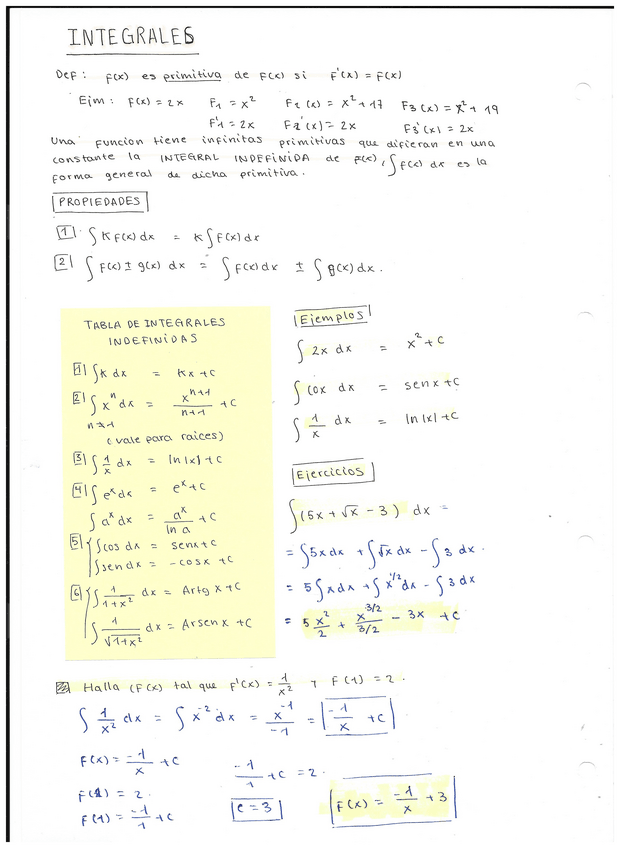 INTEGRALES
Def: f(x) es primitiva de F(x) si F'(x) = F(x)
Ejm: F(x) = 2x F₁ = x² F₂(x) = x² + 17 F₃(x) = x² + 19
F'₁ = 2x F₂'(x) = 2x F₃'(x) = 2x
Una funcion tiene infinitas primitivas que difieran en una
constante la INTEGRAL INDEFINIDA de F(x), ∫ f(x) dx es la
forma general de dicha primitiva.
PROPIEDADES
1. ∫ K F(x) dx = K ∫ F(x) dx
2 ∫ F(x) ± g(x) dx = ∫ F(x) dx ± ∫ g(x) dx.
TABLA DE INTEGRALES
INDEFINIDAS
1 ∫ K dx = Kx + C
2 ∫ xⁿ dx = xⁿ⁺¹/(n+1) + C
n ≠ -1
(vale para raices)
3 ∫ 1/x dx = ln |x| + C
4 ∫ eˣ dx = eˣ + C
∫ aˣ dx = aˣ/ln a + C
5 ∫ cos dx = senx + C
∫ sen dx = - cosx + C
6 ∫ 1/(1+x²) dx = Artg x + C
∫ 1/√(1+x²) dx = Arsen x + C
Ejemplos
∫ 2x dx = x² + C
∫ cox dx = senx + C
∫ 1/x dx = ln |x| + C
Ejercicios
∫ (5x + √x - 3) dx =
= ∫ 5x dx + ∫ √x dx - ∫ 3 dx.
= 5 ∫ x dx + ∫ x^1/2 dx - ∫ 3 dx
= 5 x²/2 + x^3/2 / 3/2 - 3x + C
Halla (F(x) tal que F'(x) = 1/x² y F(1) = 2.
∫ 1/x² dx = ∫ x⁻² dx = x⁻¹/-1 = -1/x + C
F(x) = -1/x + C
-1/1 + C = 2.
F(1) = 2.
F(1) = -1/1 + C
C = 3
F(x) = -1/x + 3